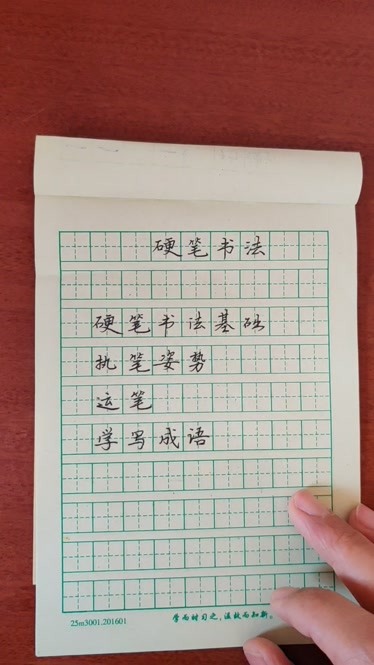 硬笔书法
硬笔书法基础
执笔姿势
运笔
学写成语
25m3001.201601
学而时习之,温故而知新。